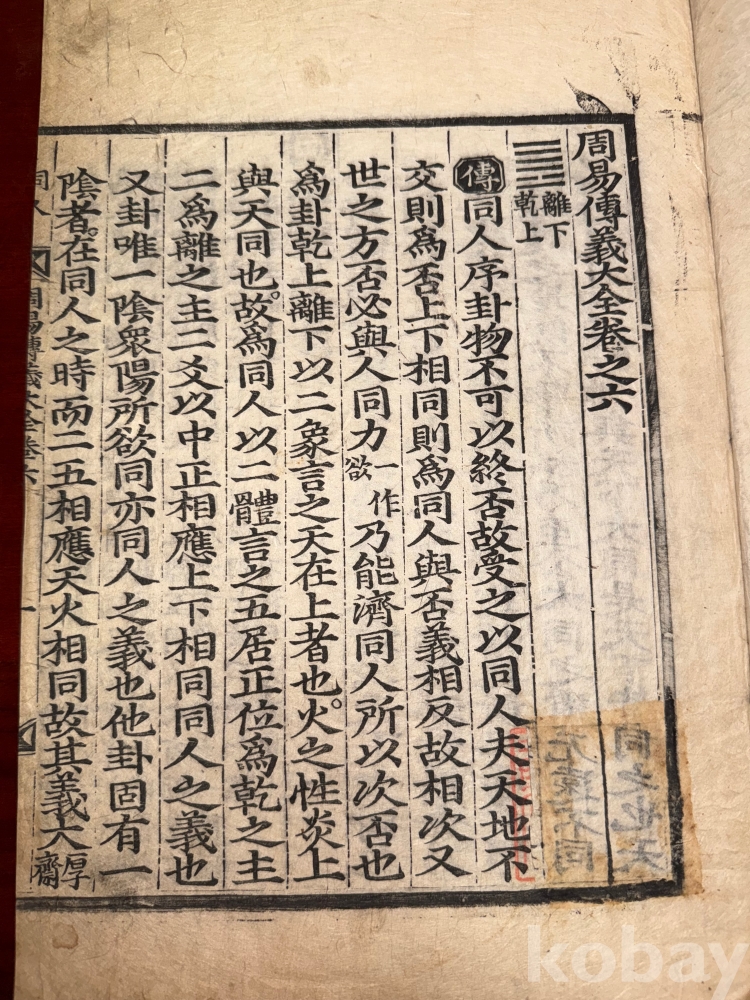 周易傳義大全卷之六
離下
乾上
傳同人序卦物不可以終否故受之以同人夫天地不
交則爲否上下相同則爲同人與否義相反故相次又
世之方否必與人同力一作欲乃能濟同人所以次否也
爲卦乾上離下以二象言之天在上者也火之性炎上
與天同也故爲同人以二體言之五居正位爲乾之主
二爲離之主二爻以中正相應上下相同同人之義也
又卦唯一陰衆陽所欲同亦同人之義也他卦固有一
陰者在同人之時而二五相應天火相同故其義大厚齋
同人
周易傳義大全卷六
一
kobay